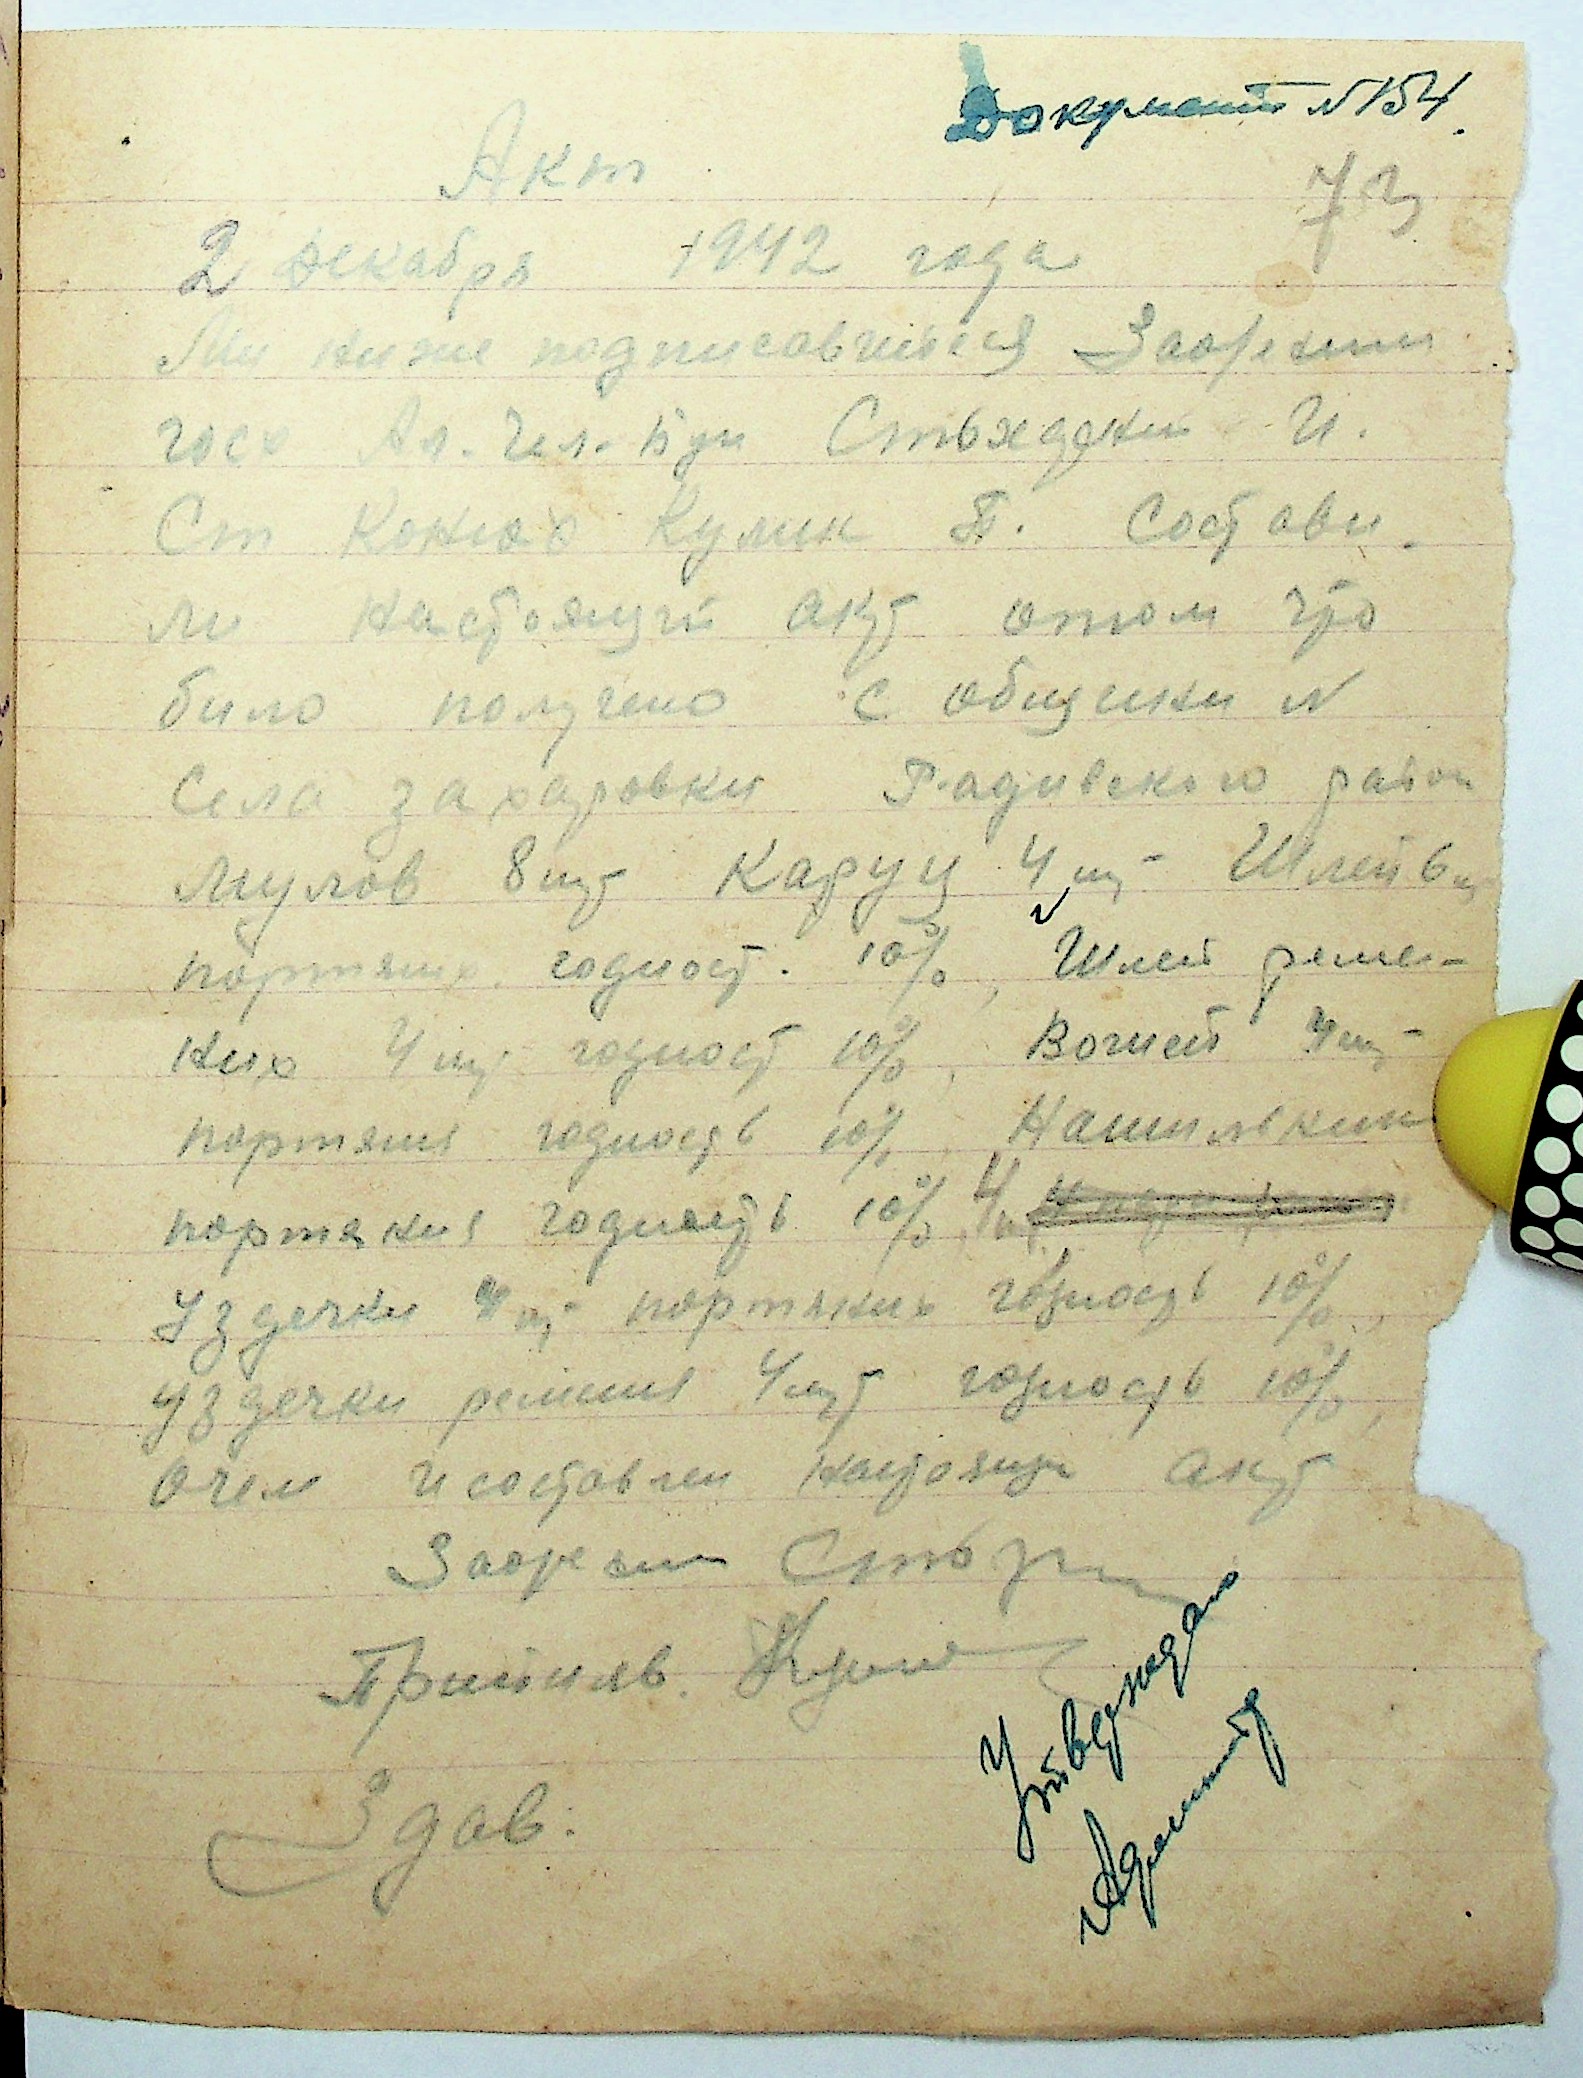 Документ №154.
73
Акт
2 декабря 1942 года
Ми ниже подписавшиеся
госх Стьхдяни И.
Ст Конюх Кулик П. Состави.
ли настоящий акт отом что
било получено с общини N
Села захаровки района
Мулов 8 шт Каруц 4 шт - Шлей 6 ш
портяних годност. 10%, Шлей ремен-
них 4 шт годност 10%, Вожей 4 шт -
портяния годность 10% Нашильники
портяния годность 10% 4 ш
Уздечки 4 шт - портяних годность 10%,
уздечки реминя 4 шт годность 10%,
Очем и составлен настоящи акт
Приниав.
Здав:
Утверждаю